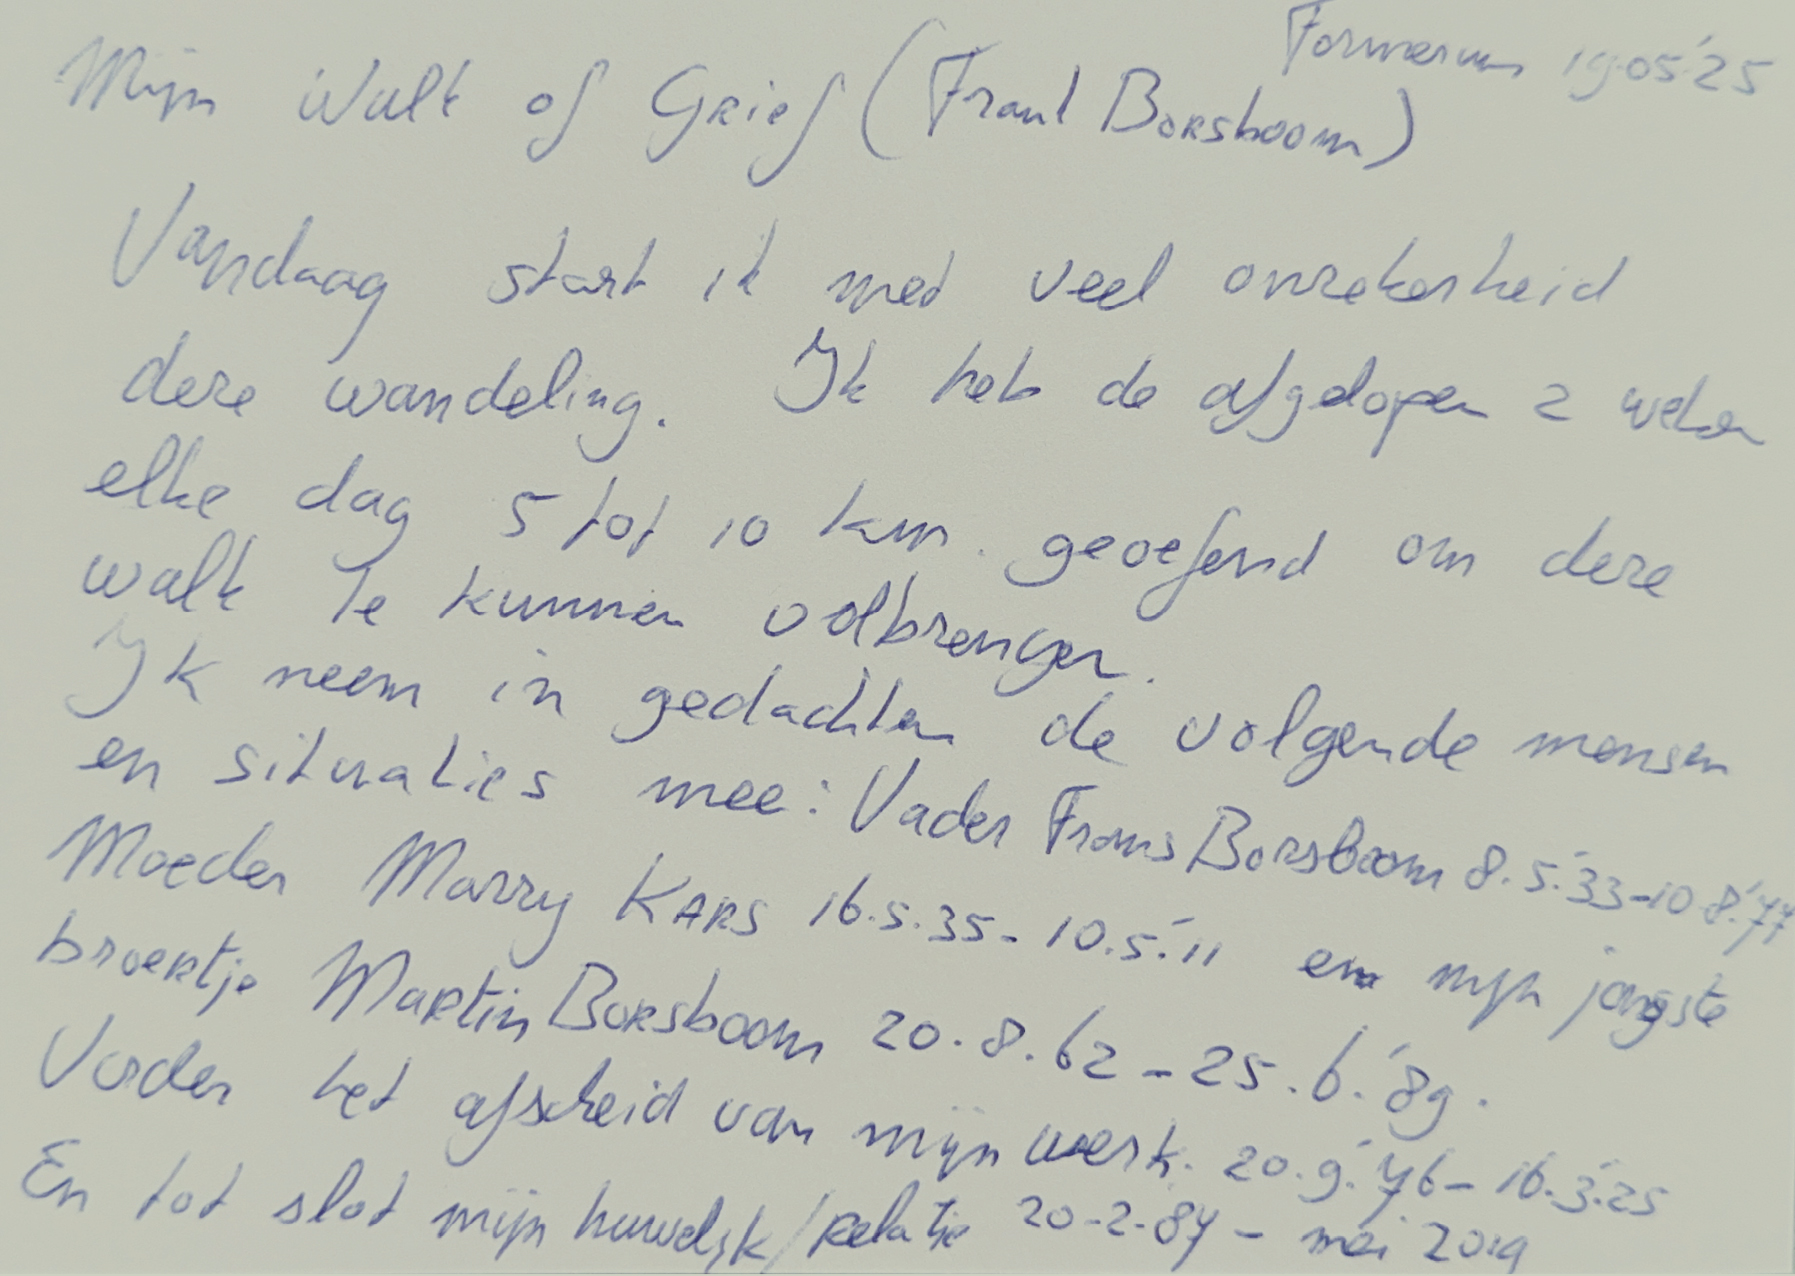 Formerum 19.05.'25
Mijn Walk of Grief (Frank Borsboom)
Vandaag start ik met veel onzekerheid
deze wandeling. Ik heb de afgelopen 2 weken
elke dag 5 tot 10 km. geoefend om deze
walk te kunnen volbrengen.
Ik neem in gedachten de volgende mensen
en situaties mee: Vader Frans Borsboom 8.5.'33-10.8.'77
Moeder Marry KARS 16.5.35-10.5.'11 en mijn jongste
broertje Martin Borsboom 20.8.62-25.6.'89.
Verder het afscheid van mijn werk. 20.9.'76-16.3.'25
En tot slot mijn huwelijk/relatie 20-2-87 - mei 2019